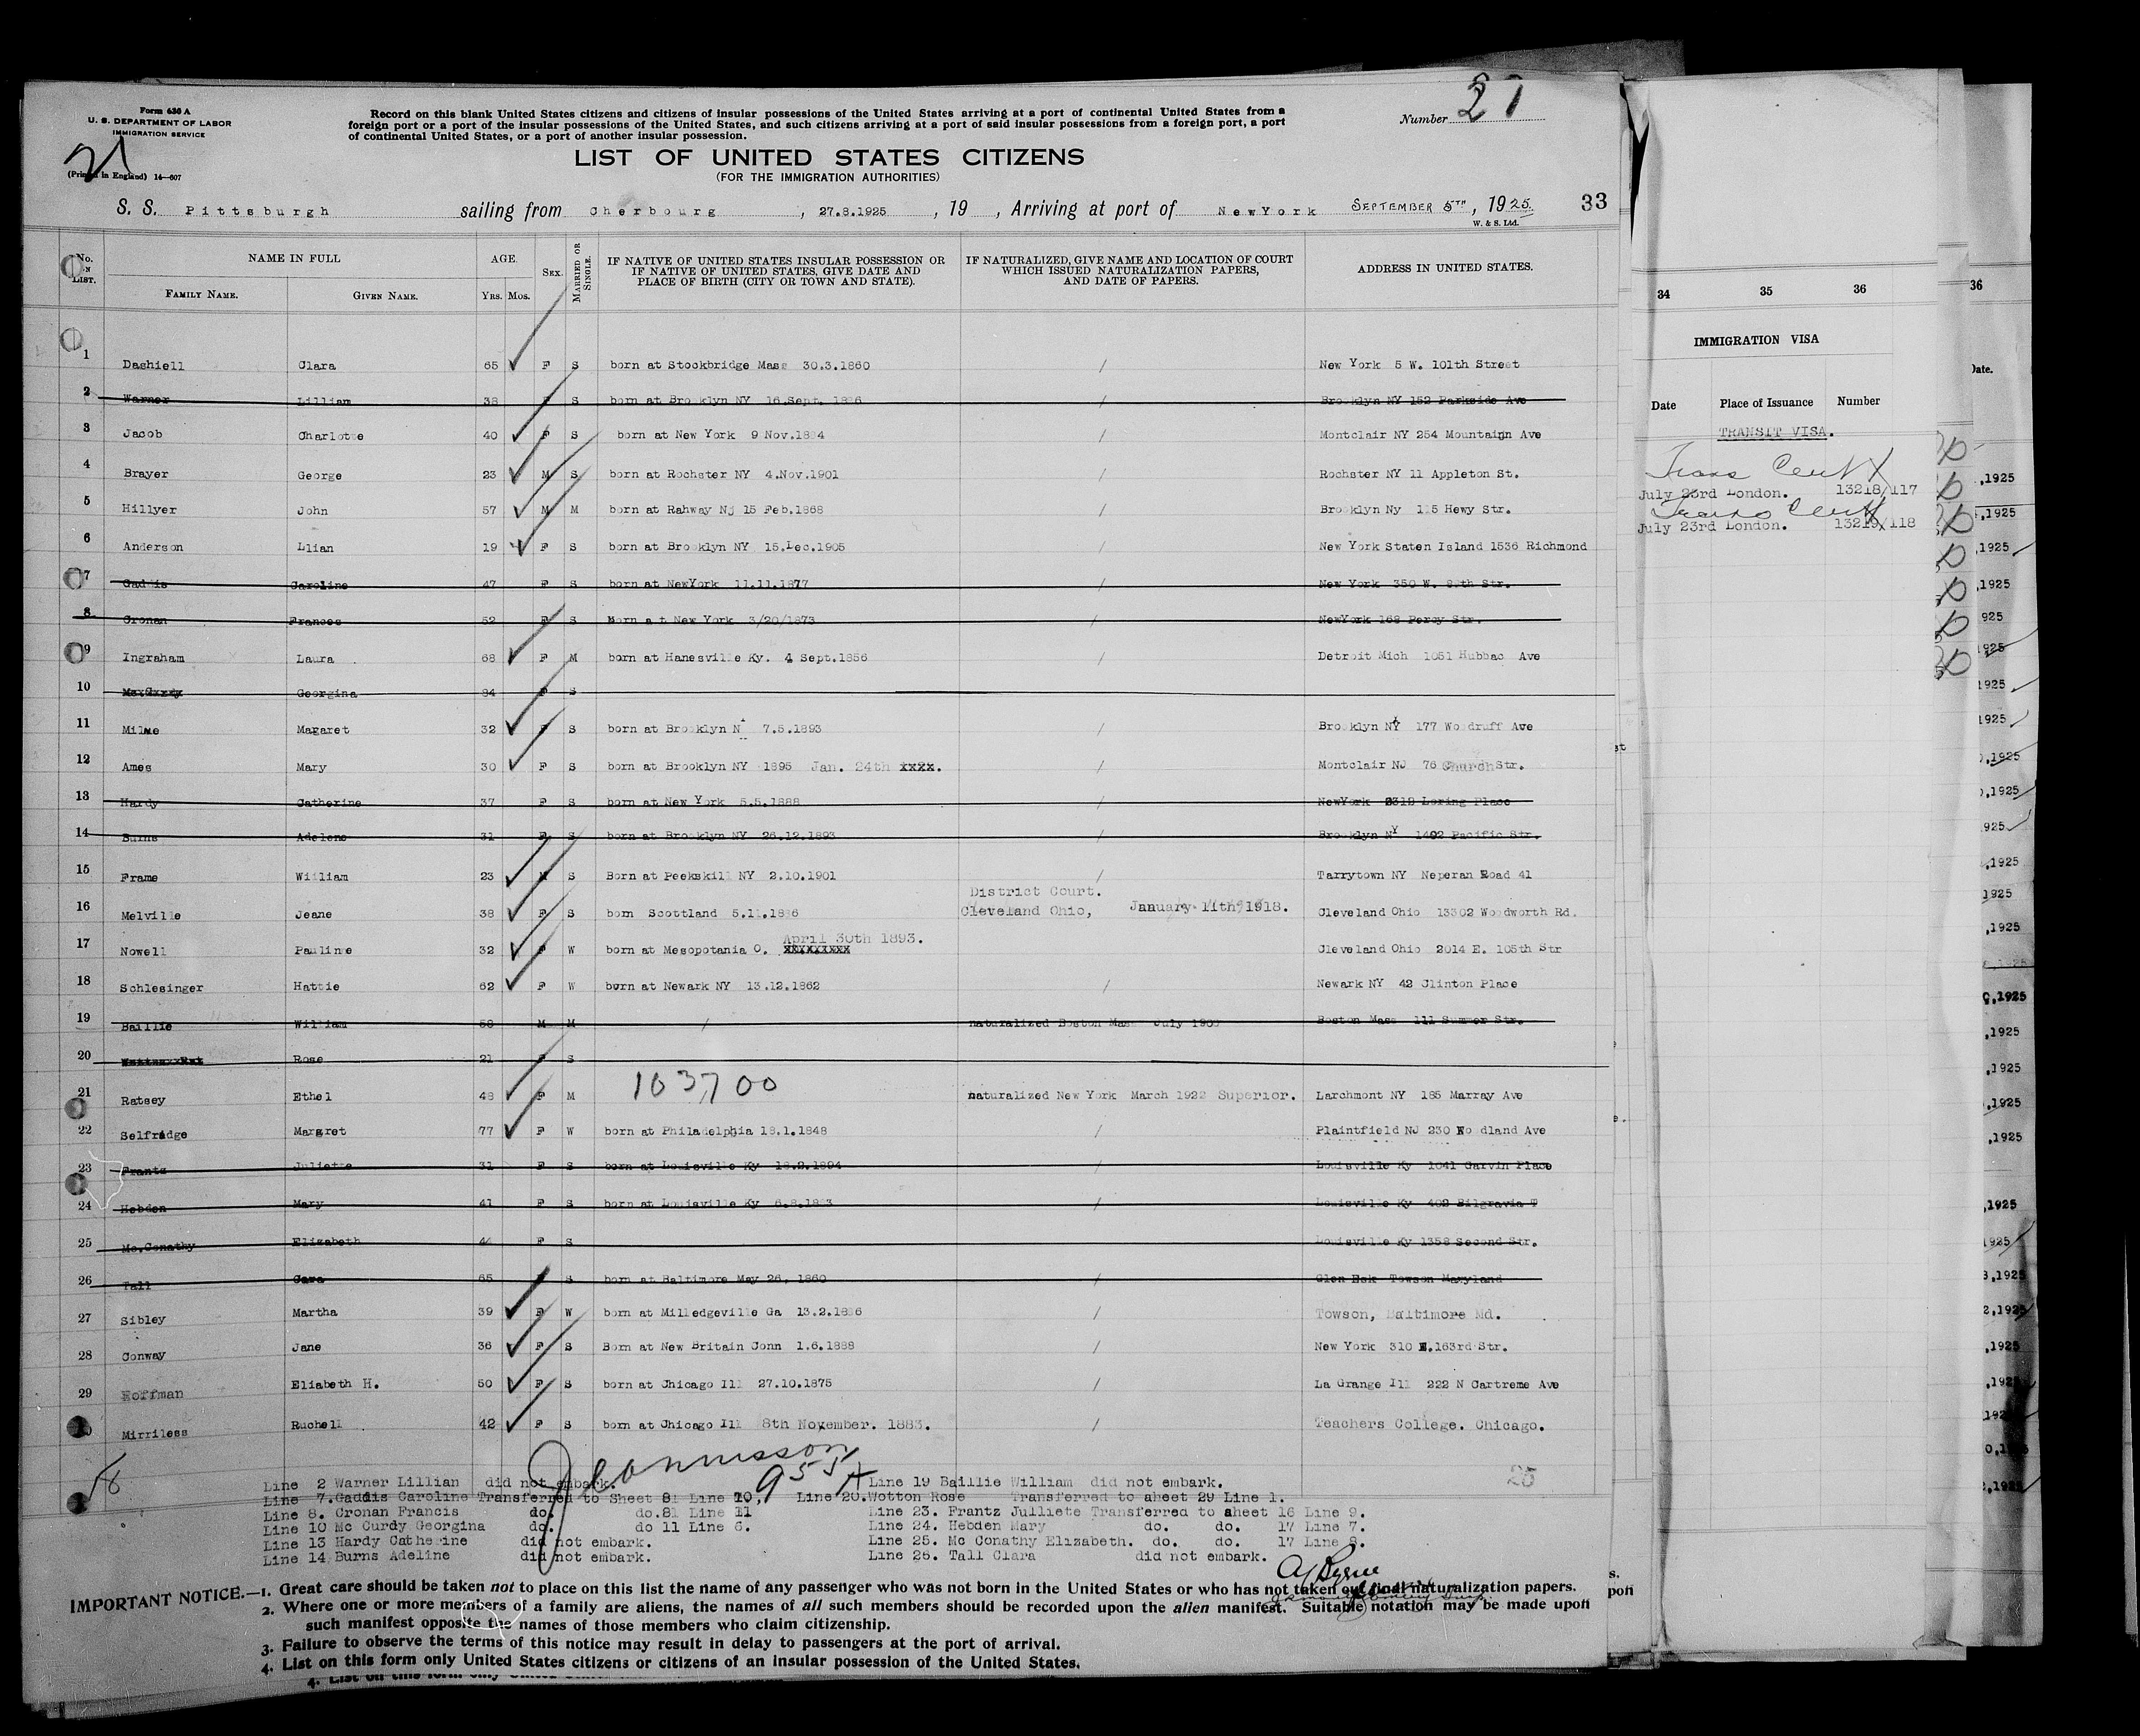 Form 630 A
U. S. DEPARTMENT OF LABOR
IMMIGRATION SERVICE
21
(Printed in England) 14—607
Record on this blank United States citizens and citizens of insular possessions of the United States arriving at a port of continental United States from a
foreign port or a port of the insular possessions of the United States, and such citizens arriving at a port of said insular possessions from a foreign port, a port
of continental United States, or a port of another insular possession.
Number 21
LIST OF UNITED STATES CITIZENS
(FOR THE IMMIGRATION AUTHORITIES)
S. S. Pittsburgh sailing from Cherbourg , 27.8.1925 , 19 , Arriving at port of NewYork SEPTEMBER 5TH , 1925. 33
W. & S. Ltd.
No. ON LIST. NAME IN FULL FAMILY NAME. GIVEN NAME. AGE Yrs. Mos. SEX. MARRIED OR SINGLE.
IF NATIVE OF UNITED STATES INSULAR POSSESSION OR
IF NATIVE OF UNITED STATES, GIVE DATE AND
PLACE OF BIRTH (CITY OR TOWN AND STATE).
IF NATURALIZED, GIVE NAME AND LOCATION OF COURT
WHICH ISSUED NATURALIZATION PAPERS,
AND DATE OF PAPERS.
ADDRESS IN UNITED STATES.
1 Dashiell Clara 65 F S born at Stockbridge Mass 30.3.1860 / New York 5 W. 101th Street
2 Warner Lilliam 38 F S born at Brooklyn NY 16.Sept. 1886 / Brooklyn NY 152 Parkside Ave
3 Jacob Charlotte 40 F S born at New York 9 Nov.1884 / Montclair NY 254 Mountain Ave
4 Brayer George 23 M S born at Rochster NY 4.Nov.1901 / Rochster NY 11 Appleton St.
5 Hillyer John 57 M M born at Rahway NJ 15 Feb.1868 / Brooklyn Ny 115 Hewy Str.
6 Anderson Llian 19 F S born at Brooklyn NY 15.Dec.1905 / New York Staten Island 1536 Richmond
7 Gaddis Caroline 47 F S born at NewYork 11.11.1877 / New York 350 W. Str.
8 Cronan Frances 52 F S Born at New York 3/20/1873 / NewYork 168 Percy Str.
9 Ingraham Laura 68 F M born at Hanesville Ky. 4 Sept.1856 / Detroit Mich 1051 Hubbac Ave
10 Georgina 34 F S
11 Milne Magaret 32 F S born at Brooklyn N 7.5.1893 / Brooklyn NY 177 Woodruff Ave
12 Ames Mary 30 F S born at Brooklyn NY 1895 Jan. 24th xxxx. / Montclair NJ 76 Church Str.
13 Hardy Catherine 37 F S born at New York 5.5.1888 / NewYork 2312 Loring Place
14 Burns Adelene 31 F S born at Brooklyn NY 26.12.1893 / Brooklyn NY 1402 Pacific Str.
15 Frame William 23 M S Born at Peekskill NY 2.10.1901 / Tarrytown NY Neperan Road 41
District Court.
16 Melville Jeane 38 F S born Scottland 5.11.1886 Cleveland Ohio, January 11th 1918. Cleveland Ohio 13302 Woodworth Rd.
April 30th 1893.
17 Nowell Pauline 32 F W born at Mesopotania O. xxxxxxxxx Cleveland Ohio 2014 E. 105th Str
18 Schlesinger Hattie 62 F W born at Newark NY 13.12.1862 / Newark NY 42 Clinton Place
19 Baillie William 58 M M / naturalized Boston Mass July 190 Boston Mass 111 Summer Str.
20 Rose 21 F S
103700
21 Ratsey Ethel 48 F M naturalized New York March 1922 Superior. Larchmont NY 185 Marray Ave
22 Selfridge Margret 77 F W born at Philadelphia 18.1.1848 / Plaintfield NJ 230 Woodland Ave
23 Frantz Juliette 31 F S born at Louisville Ky 18.2.1894 / Louisville Ky 1041 Garvin Place
24 Hebden Mary 41 F S born at Louisville Ky 6.8.1883 / Louisville Ky 402 Bilgravia
25 Mc.Conathy Elizabeth 44 F S Louisville Ky 1358 Second Str.
26 Tall Cara 65 F S born at Baltimore May 26. 1860 / Glen Esk Towson Maryland
27 Sibley Martha 39 F W born at Milledgeville Ga 13.2.1886 / Towson, Baltimore Md.
28 Conway Jane 36 F S Born at New Britain Conn 1.6.1888 / New York 310 E.163rd Str.
29 Hoffman Eliabeth H. 50 F S born at Chicago Ill 27.10.1875 / La Grange Ill 222 N Cartreme Ave
Mirriless Ruchell 42 F S born at Chicago Ill 8th November. 1883. / Teachers College. Chicago.
18
955
25
Line 2 Warner Lillian did not embark.
Line 7.Gaddis Caroline Transferred to Sheet 81 Line 10,
Line 8. Cronan Francis do. do.81 Line 11
Line 10 Mc Curdy Georgina do. do 11 Line 6.
Line 13 Hardy Catherine did not embark.
Line 14 Burns Adeline did not embark.
Line 19 Baillie William did not embark.
Line 20.Wotton Rose Transferred to sheet 29 Line 1.
Line 23. Frantz Julliete Transferred to sheet 16 Line 9.
Line 24. Hebden Mary do. do. 17 Line 7.
Line 25. Mc Conathy Elizabeth. do. do. 17 Line 8.
Line 26. Tall Clara did not embark.
IMPORTANT NOTICE.—1. Great care should be taken not to place on this list the name of any passenger who was not born in the United States or who has not taken out final naturalization papers.
2. Where one or more members of a family are aliens, the names of all such members should be recorded upon the alien manifest. Suitable notation may be made upon
such manifest opposite the names of those members who claim citizenship.
3. Failure to observe the terms of this notice may result in delay to passengers at the port of arrival.
4. List on this form only United States citizens or citizens of an insular possession of the United States.
34 35 36
IMMIGRATION VISA
Date Place of Issuance Number
TRANSIT VISA.
July 23rd London. 13218/117
July 23rd London. 13219/118
36
Date.
,1925
,1925
,1925
,1925
925
1925
1925
1925
,1925
,1925
925
,1925
1925
,1925
,1925
,1925
,1925
,1925
,1925
,1925
1925
,1925
,1925
,1925